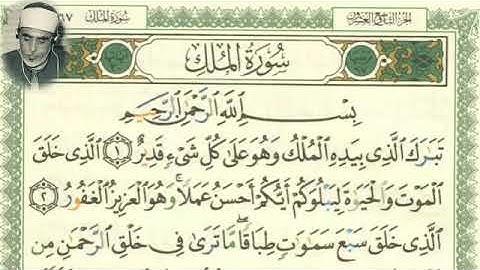 الجزء التاسع والعشرون
٦٧ سُورَةُ المُلْكِ
سُورَةُ المُلْكِ
بِسْمِ ٱللَّهِ ٱلرَّحْمَٰنِ ٱلرَّحِيمِ
تَبَٰرَكَ ٱلَّذِى بِيَدِهِ ٱلْمُلْكُ وَهُوَ عَلَىٰ كُلِّ شَىْءٍ قَدِيرٌ ١ ٱلَّذِى خَلَقَ
ٱلْمَوْتَ وَٱلْحَيَوٰةَ لِيَبْلُوَكُمْ أَيُّكُمْ أَحْسَنُ عَمَلًا ۚ وَهُوَ ٱلْعَزِيزُ ٱلْغَفُورُ ٢
ٱلَّذِى خَلَقَ سَبْعَ سَمَٰوَٰتٍ طِبَاقًا ۖ مَّا تَرَىٰ فِى خَلْقِ ٱلرَّحْمَٰنِ مِن